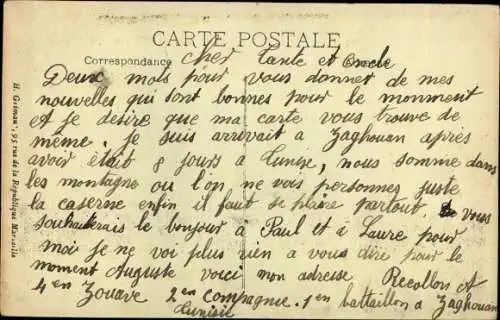 CARTE POSTALE
Correspondance
Cher Tante et Oncle
Deux mots pour vous donner de mes
nouvelles qui sont bonnes pour le monment
et je desire que ma carte vous trouve de
même. je suis arrevait a Zaghouan après
avoir était 8 jours a Tunise, nous somme dans
les montagne ou l'on ne vois personnes juste
la caserne enfin il faut se plaire partout. vous
souhaiterais le bonjour à Paul et à Laure pour
moi je ne voi plus rien a vous dire pour le
moment Auguste voici mon adresse Recollon A
4 en Zouave 2 en compagnie. 1 en battaillon a Zaghouan
Tunisie
95 rue de la République Marseille